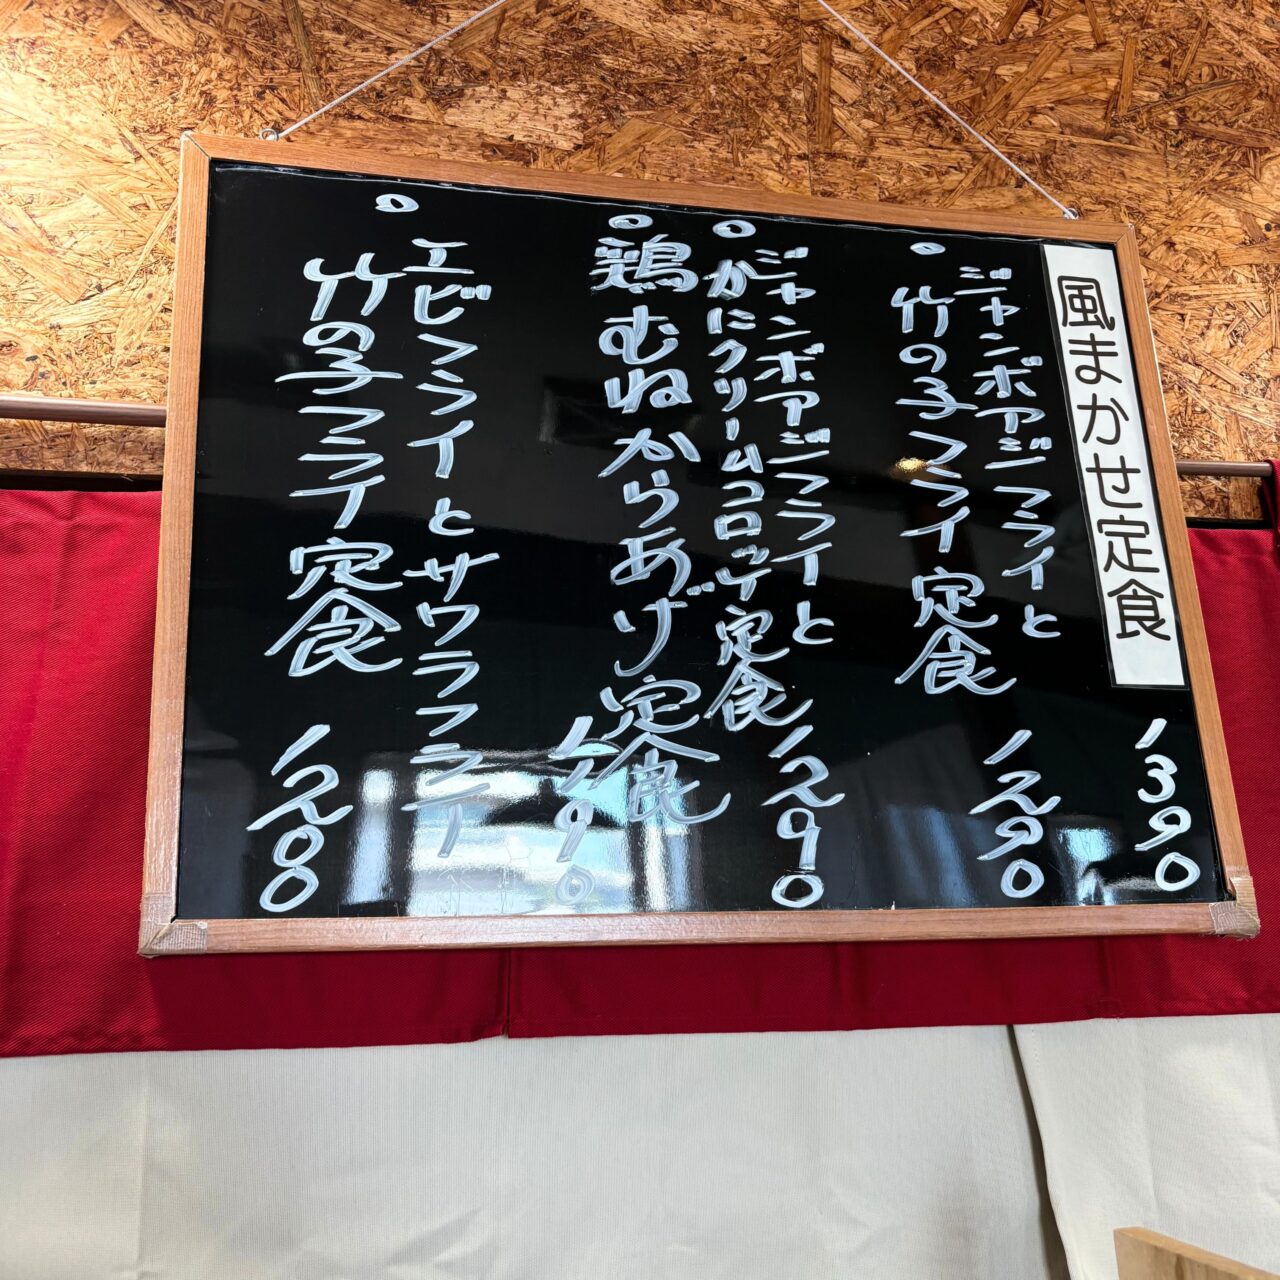 風まかせ定食
1390
○
ジャンボアジフライと
竹の子フライ定食
1290
○
ジャンボアジフライと
かにクリームコロッケ定食
1290
○
鶏むねからあげ定食
1190
○
エビフライとサワラフライ
竹の子フライ定食
1280